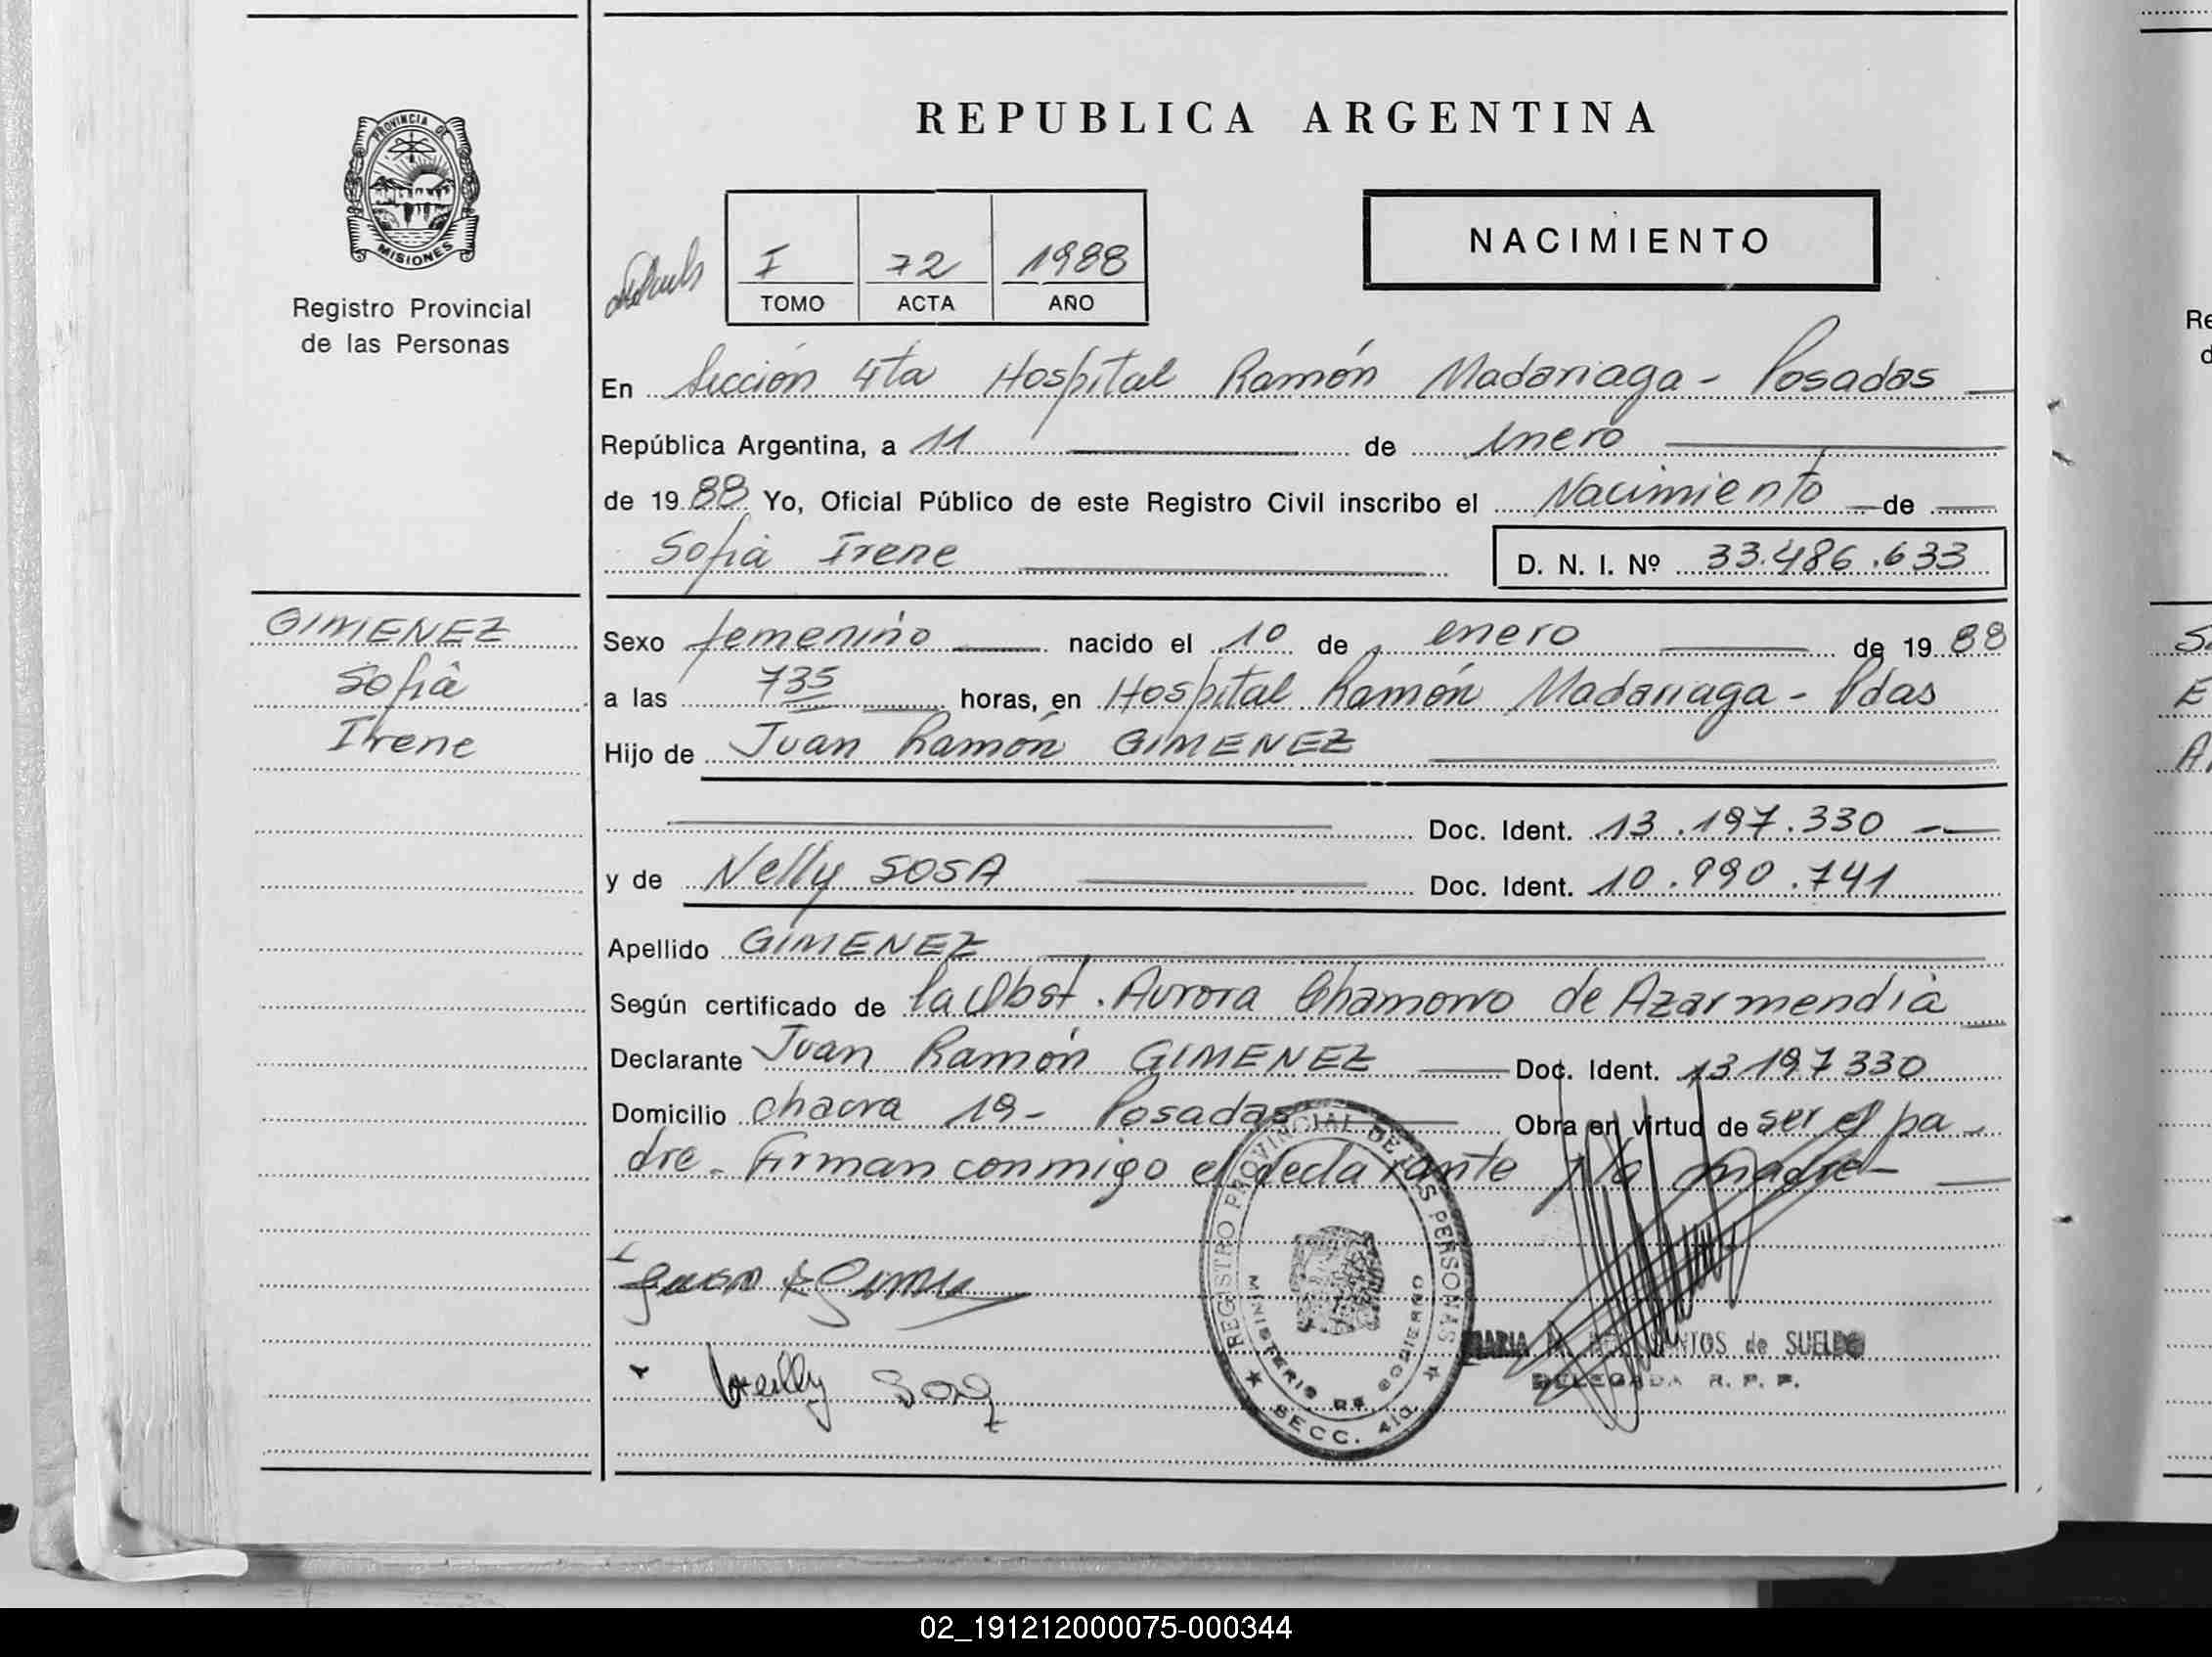 REPUBLICA ARGENTINA
PROVINCIA DE MISIONES
Registro Provincial
de las Personas
I 72 1988
TOMO ACTA AÑO
NACIMIENTO
En Sección 4ta Hospital Ramón Madariaga - Posadas
República Argentina, a 11 de enero
de 1988 Yo, Oficial Público de este Registro Civil inscribo el Nacimiento de
Sofia Irene D. N. I. Nº 33.486.633
GIMENEZ
Sofia
Irene
Sexo femenino nacido el 10 de enero de 1988
a las 735 horas, en Hospital Ramón Madariaga - Pdas
Hijo de Juan Ramón GIMENEZ
Doc. Ident. 13.197.330
y de Nelly SOSA Doc. Ident. 10.990.741
Apellido GIMENEZ
Según certificado de la Obst. Aurora Chamorro de Azarmendia
Declarante Juan Ramón GIMENEZ Doc. Ident. 13197330
Domicilio chacra 19- Posadas Obra en virtud de ser el pa-
dre. Firman conmigo el declarante y la madre-
REGISTRO PROVINCIAL DE LAS PERSONAS
MINISTERIO DE GOBIERNO
SECC. 4ta
MARIA SANTOS de SUELDO
DELEGADA R. P. P.
02_191212000075-000344